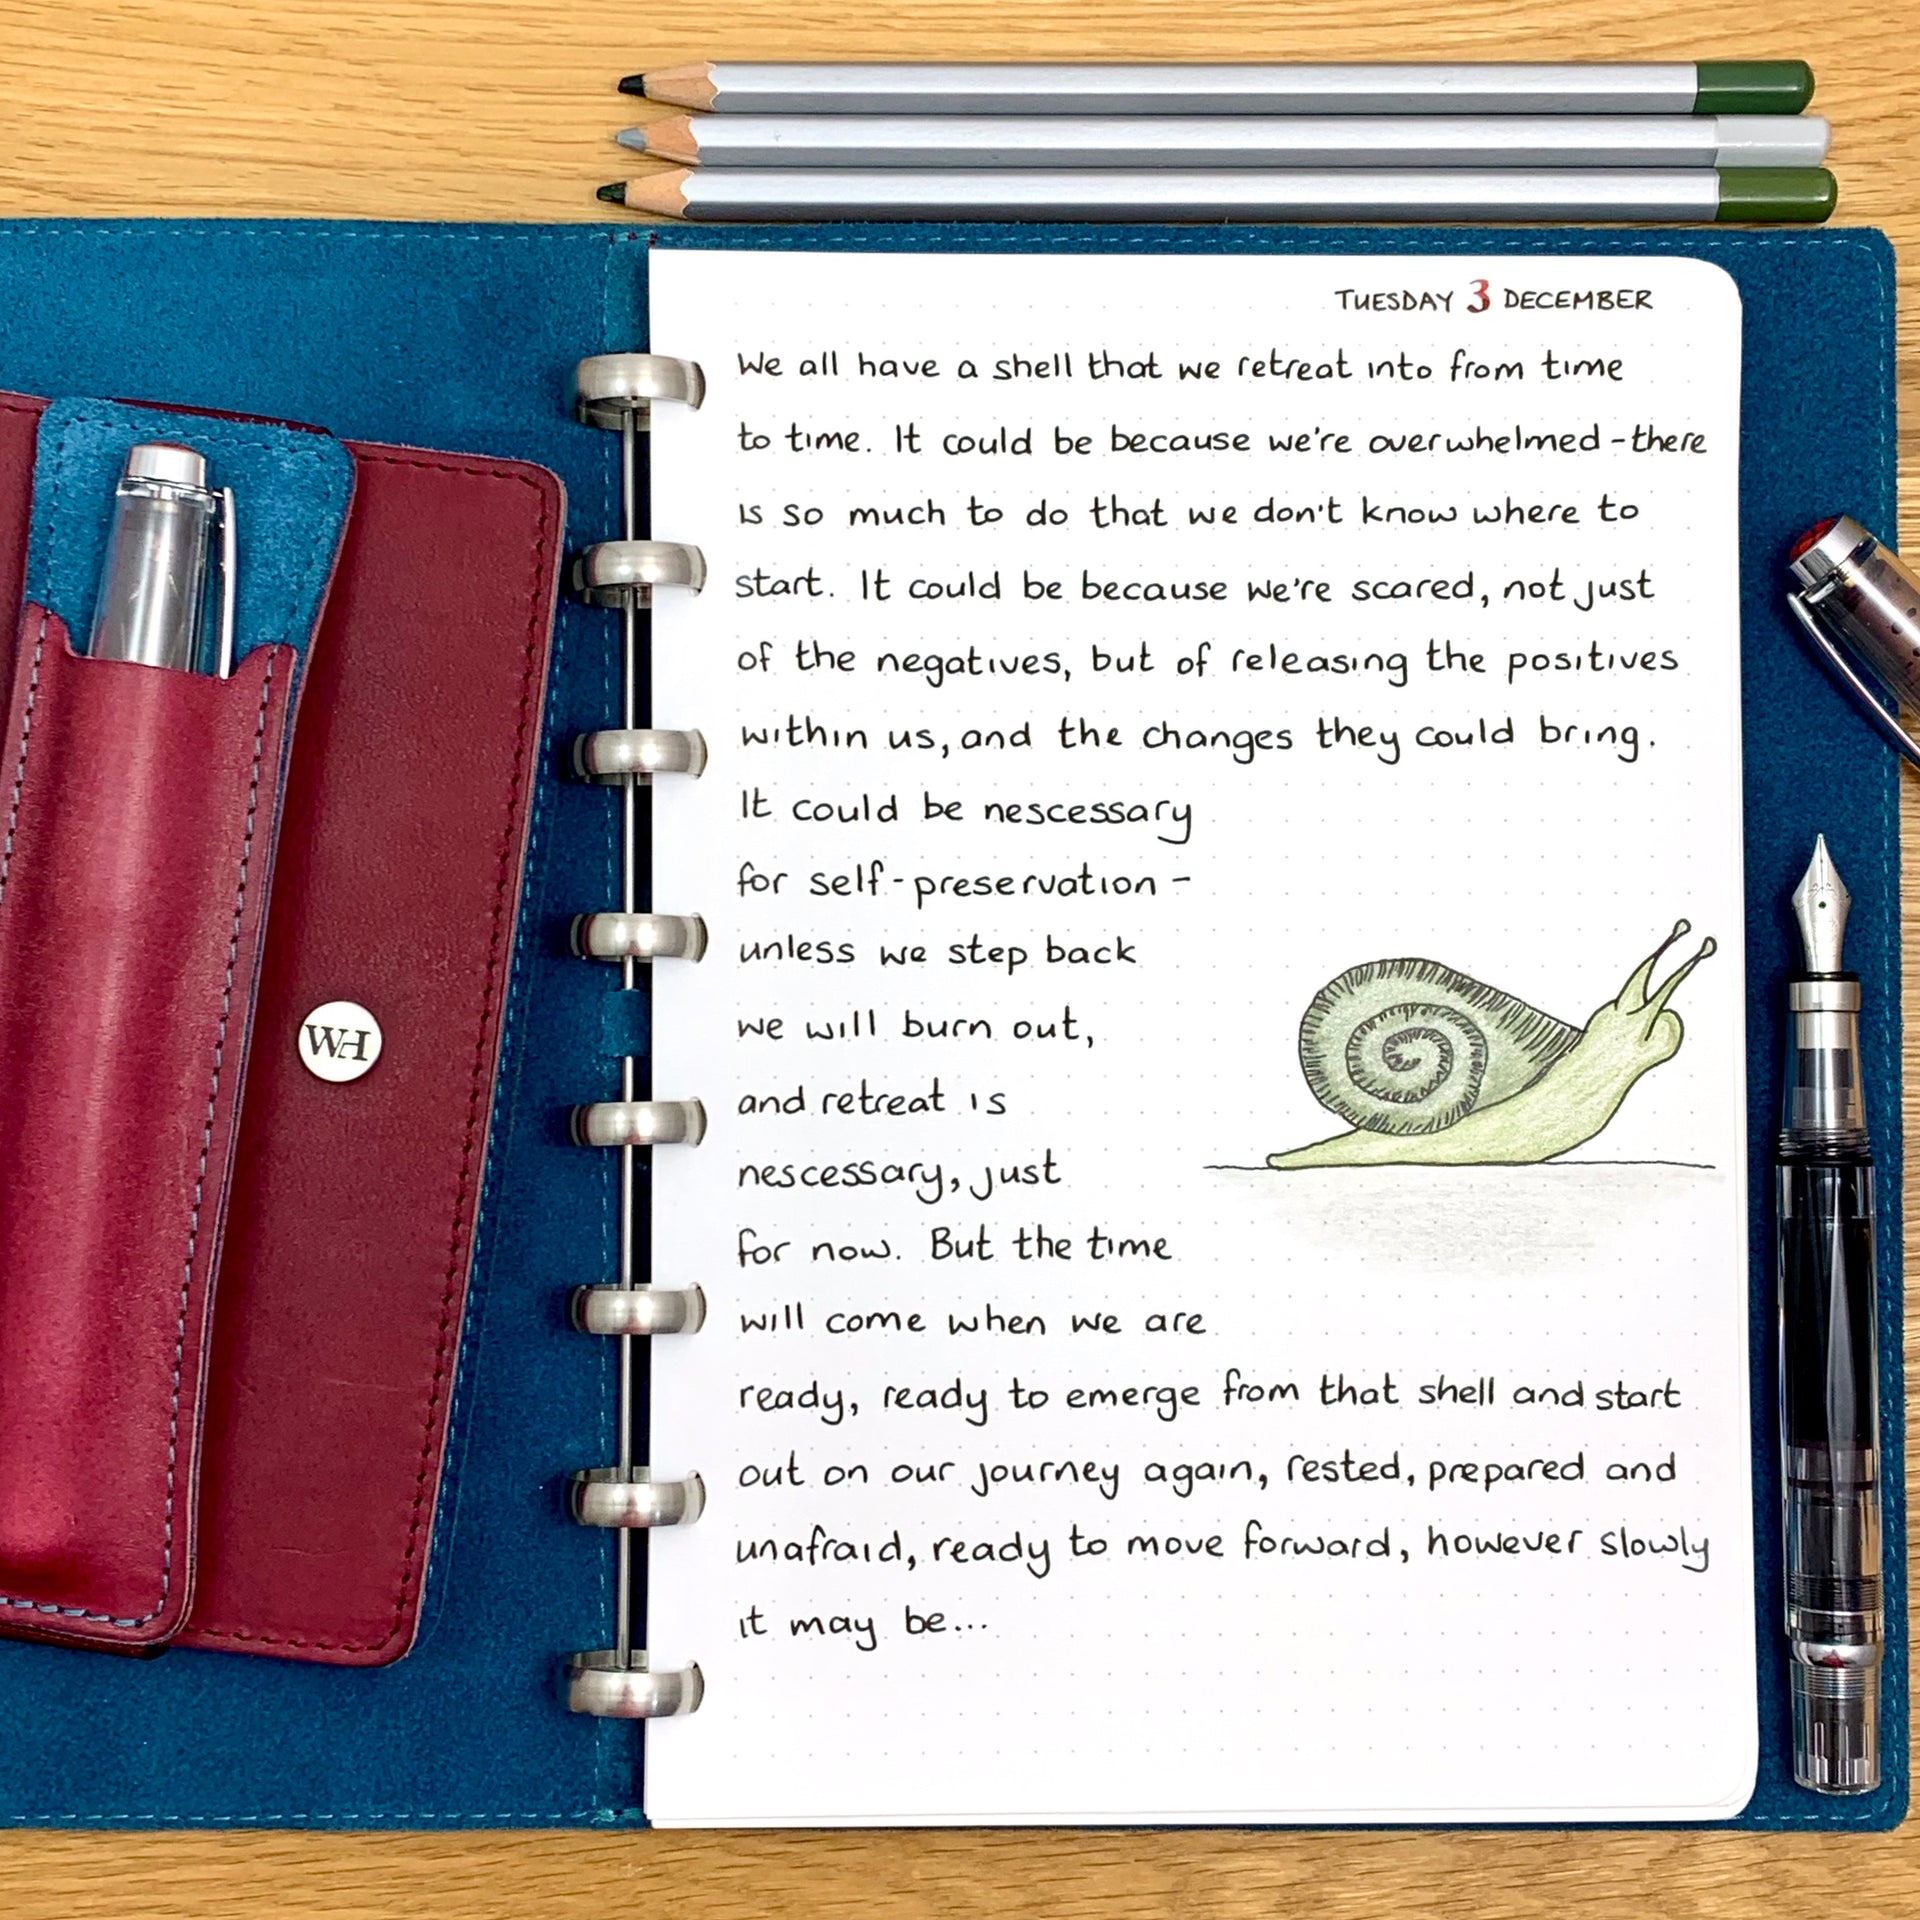 TUESDAY 3 DECEMBER
We all have a shell that we retreat into from time
to time. It could be because we're overwhelmed - there
is so much to do that we don't know where to
start. It could be because we're scared, not just
of the negatives, but of releasing the positives
within us, and the changes they could bring.
It could be nescessary
for self-preservation -
unless we step back
we will burn out,
and retreat is
nescessary, just
for now. But the time
will come when we are
ready, ready to emerge from that shell and start
out on our journey again, rested, prepared and
unafraid, ready to move forward, however slowly
it may be...
WH